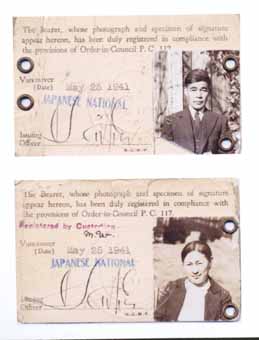 The Bearer, whose photograph and specimen of signature
appear hereon, has been duly registered in compliance with
the provisions of Order-in-Council P. C. 117.
Vancouver
(Date) May 26 1941
JAPANESE NATIONAL
Issuing
Officer
R.C.M.P.
The Bearer, whose photograph and specimen of signature
appear hereon, has been duly registered in compliance with
the provisions of Order-in-Council P. C. 117.
Registered by Custodian
Vancouver
(Date) May 26 1941
JAPANESE NATIONAL
Issuing
Officer
R.C.M.P.